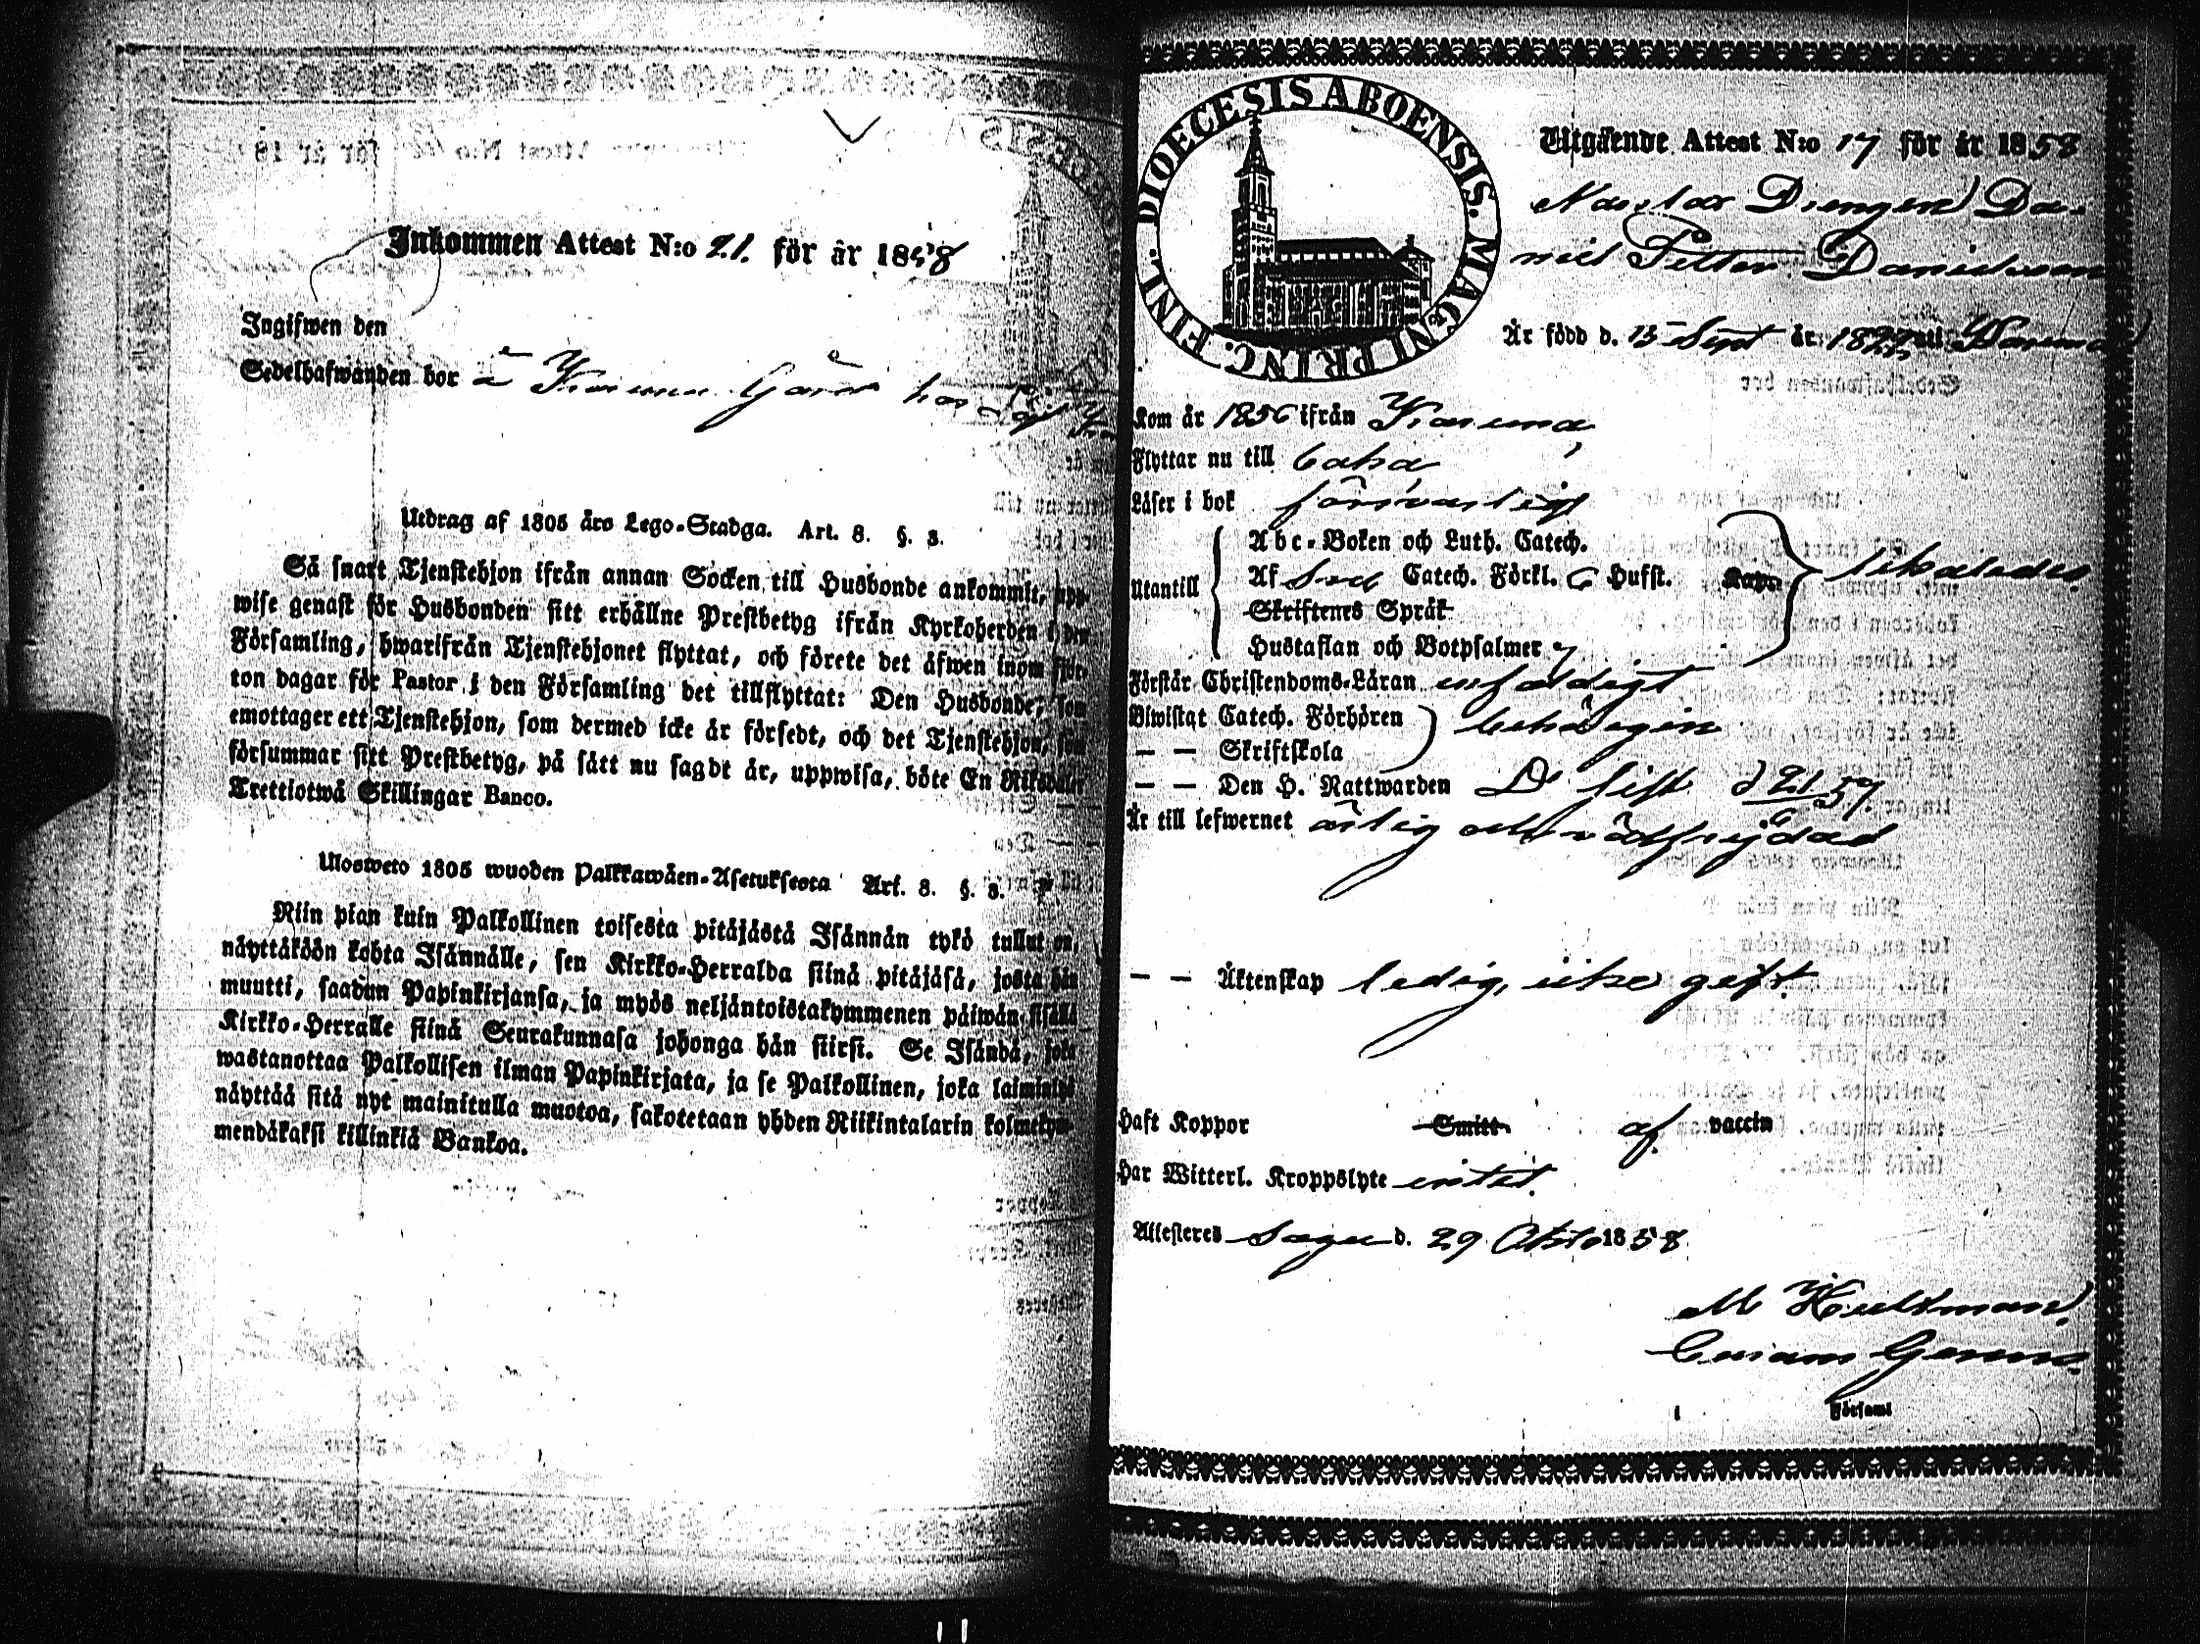 Inkommen Attest N:o 21. för år 1858
Ingifwen den
Sedelhafwanden bor å Karuna Gård hos
Utdrag af 1805 års Lego-Stadga. Art. 8. §. 3.
Så snart Tjenstehjon ifrån annan Socken till Husbonde ankommit, upp-
wise genast för Husbonden sitt erhållne Prestbetyg ifrån Kyrkoherden i den
Församling, hwarifrån Tjenstehjonet flyttat, och förete det äfwen inom fjor-
ton dagar för Pastor i den Församling det tillflyttat: Den Husbonde, som
emottager ett Tjenstehjon, som dermed icke är försedt, och det Tjenstehjon, som
försummar sitt Prestbetyg, på sätt nu sagdt är, uppwisa, böte En Riksdaler
Trettiotwå Skillingar Banco.
Ulosweto 1805 wuoden Palkkawäen-Asetuksesta Art. 8. §. 3.
Niin pian kuin Palkollinen toisesta pitäjästä Isännän tykö tullut on,
näyttäköön kohta Isännälle, sen Kirkko-Herralda siinä pitäjäsä, josta hän
muutti, saadun Papinkirjansa, ja myös neljäntoistakymmenen päiwän sisällä
Kirkko-Herralle siinä Seurakunnasa johonga hän siirsi. Se Isändä, joka
wastanottaa Palkollisen ilman Papinkirjata, ja se Palkollinen, joka laiminlyö
näyttää sitä nyt mainitulla muotoa, sakotetaan yhden Riikintalarin kolmekym-
mendäkaksi killinkiä Bankoa.
DIOECESIS ABOENSIS. MAGNI PRINC. FINL.
Utgående Attest N:o 17 för år 1858
Drengen Da-
niel Petter Danielsson
Är född d. 15 Sept år 1822 uti Karuna
Kom år 1856 ifrån Karuna
Flyttar nu till
Läser i bok försvarligt
Utantill
Abc-Boken och Luth. Catech.
Af Sved Catech. Förkl. 6 Hufst. Kap.
Skriftenes Språk
Hustaflan och Botpsalmer
likaledes
Förstår Christendoms-Läran enfaldigt
Biwistat Catech. Förhören
— — Skriftskola
behörigen
— — Den H. Nattwarden d 21/6 57.
Är till lefwernet ärlig och välfrejdad
— — Äktenskap ledig, icke gift.
Haft Koppor Smitt. af vaccin
Har Witterl. Kroppslyte intet.
Attesteras Sagu d. 29 Octob 1858
M Hultman
Curam Gerens
Församl